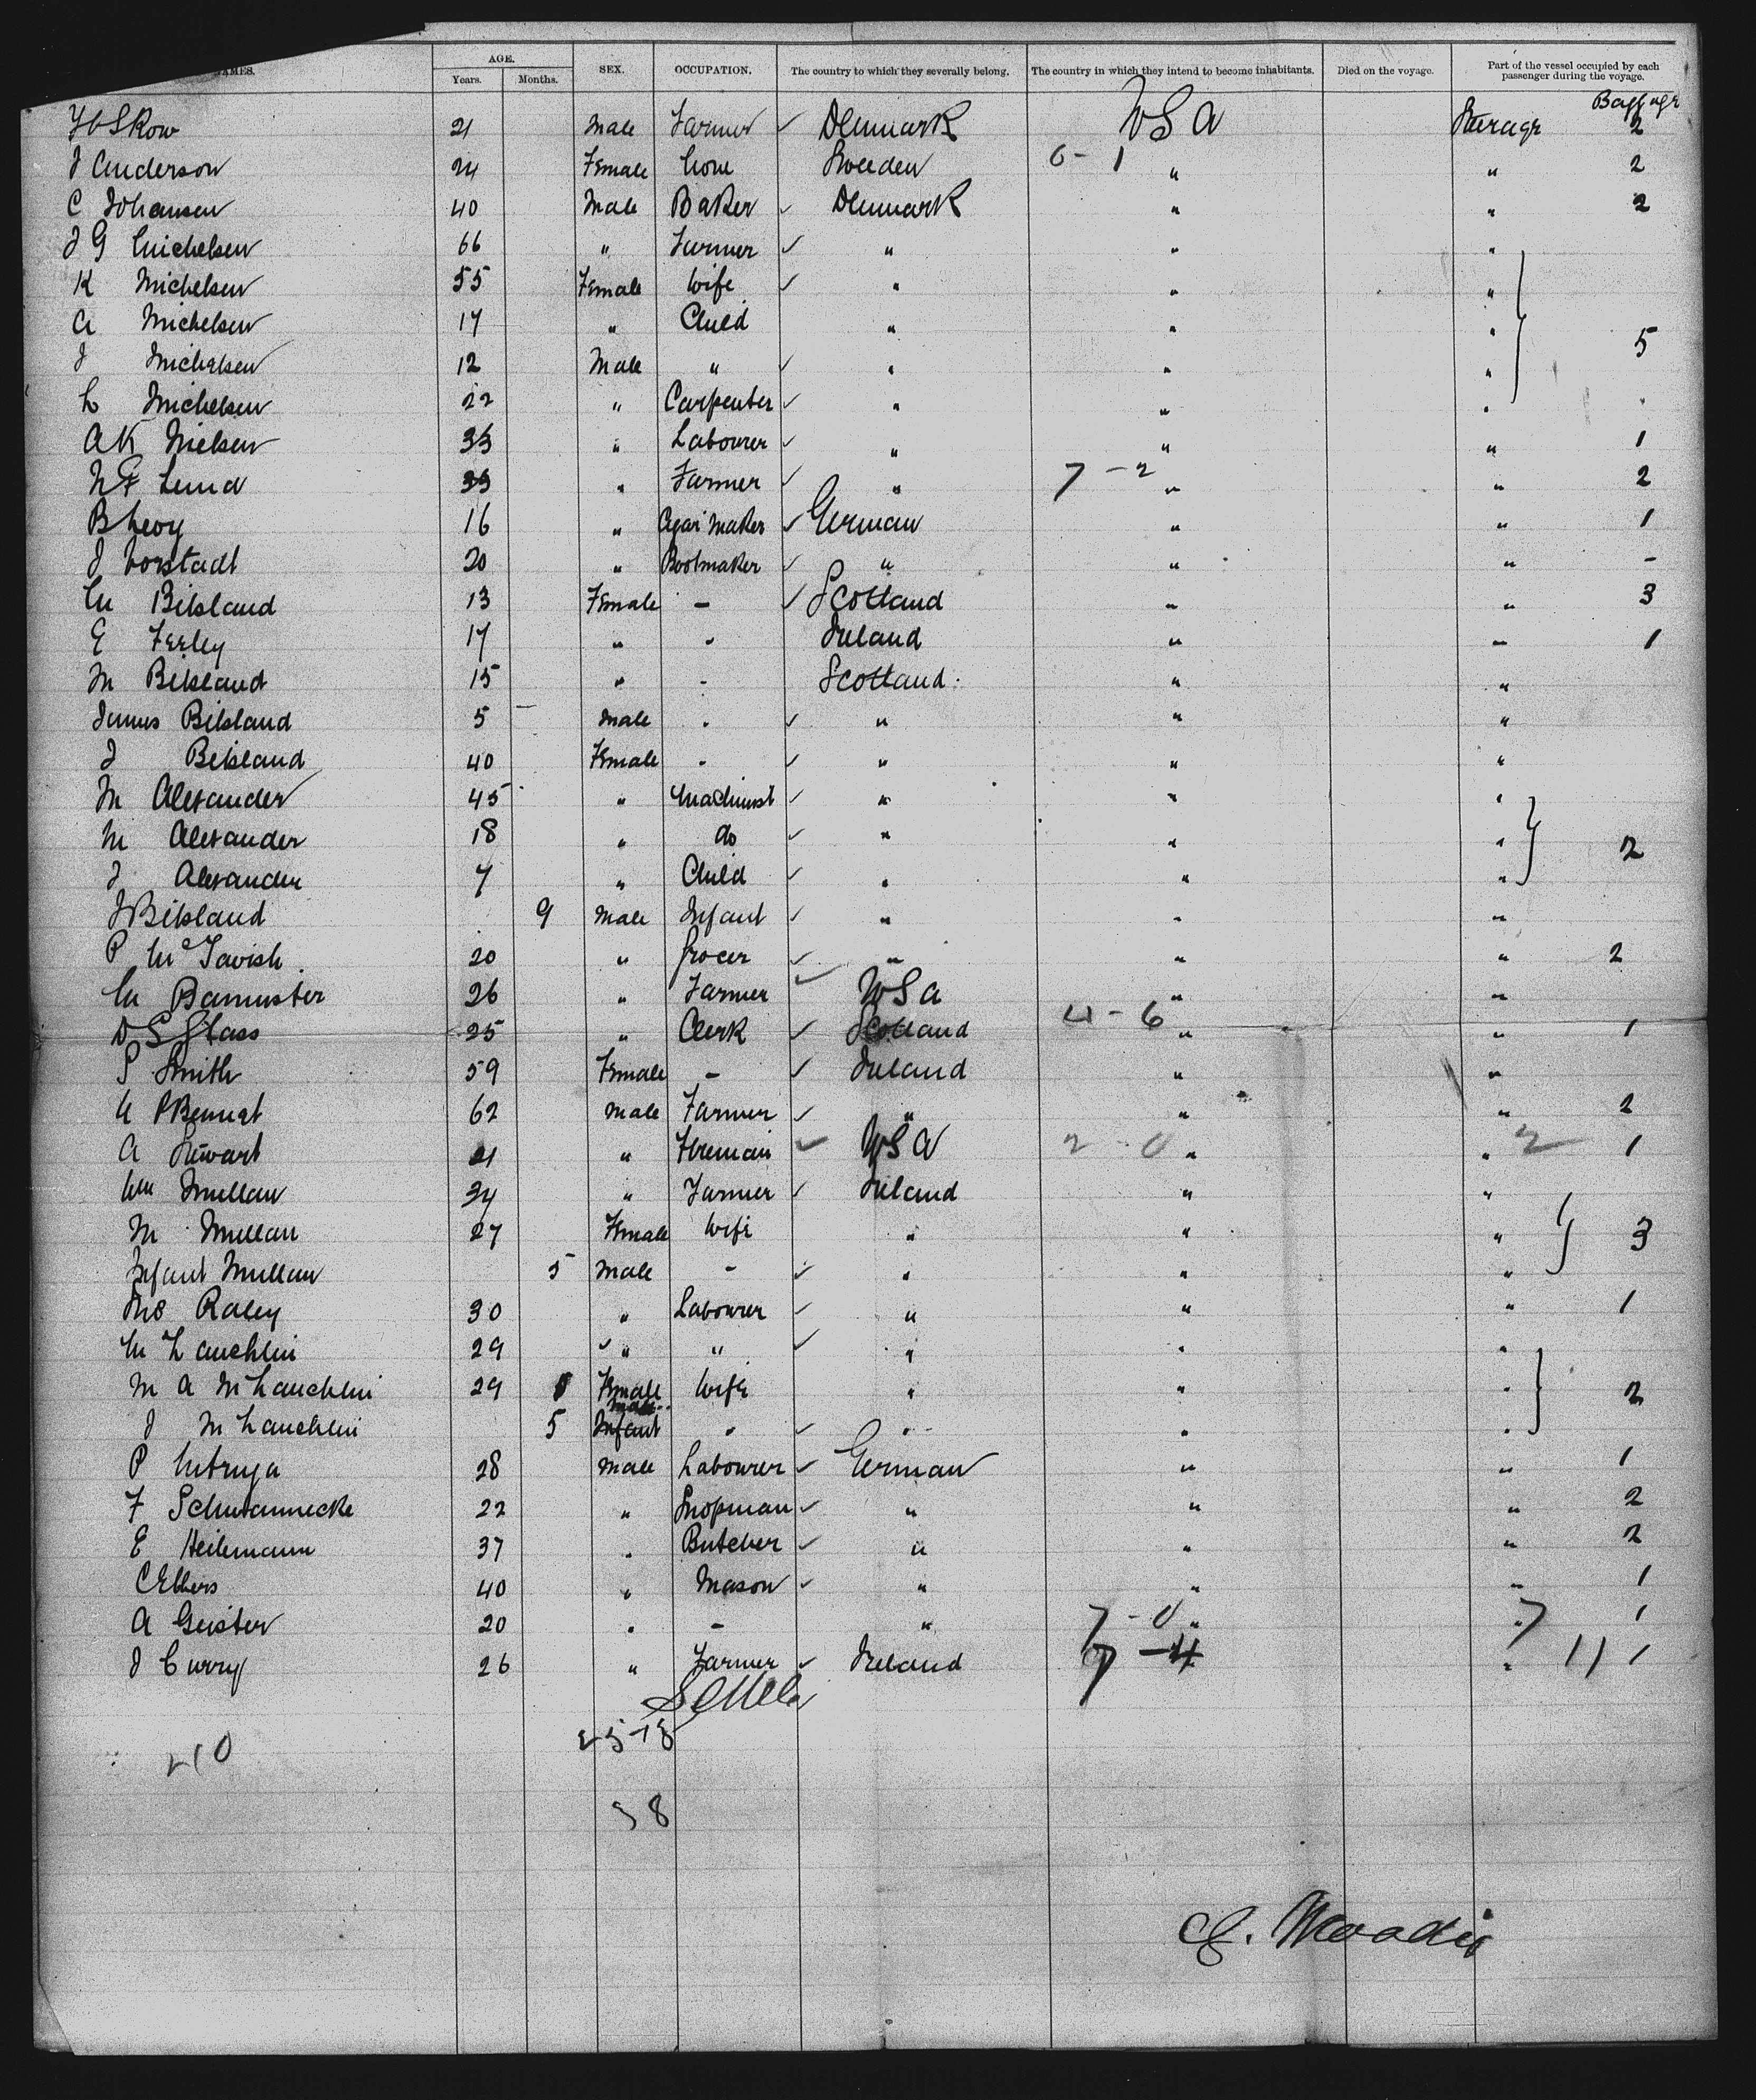 NAMES. AGE. Years. Months. SEX. OCCUPATION. The country to which they severally belong. The country in which they intend to become inhabitants. Died on the voyage. Part of the vessel occupied by each passenger during the voyage.
Baggage
Skow 21 Male Farmer ✓ Denmark USA Steerage 2
J Anderson 24 Female Sweeden 6-1 " " 2
C Johansen 40 Male Baker ✓ Denmark " " 2
J G Michelsen 66 " Farmer ✓ " " "
K Michelsen 55 Female Wife ✓ " " "
A Michelsen 17 " Child " " "
J Michelsen 12 Male " ✓ " " " 5
L Michelsen 22 " Carpenter ✓ " " "
A K Nielsen 33 " Labourer ✓ " " " 1
Lund 33 " Farmer ✓ " 7-2 " " 2
B Levy 16 " Cigar Maker ✓ German " " 1
J Vorstadt 20 " Bootmaker ✓ " " " -
M Bilsland 13 Female - ✓ Scotland " " 3
E Ferley 17 " - Ireland " " 1
M Bilsland 15 " - Scotland " "
James Bilsland 5 - Male - ✓ " " "
J Bilsland 40 Female - ✓ " " "
M Alexander 45 " Machinist ✓ " " "
M Alexander 18 " do ✓ " " " 2
J Alexander 7 " Child ✓ " " "
J Bilsland 9 Male Infant ✓ " " "
P McTavish 20 " Grocer ✓ " " " 2
M Bannister 26 " Farmer ✓ USA " "
D S Glass 25 " Clerk ✓ Scotland 4-6 " " 1
S Smith 59 Female - ✓ Ireland " "
62 Male Farmer ✓ " " " 2
A Stewart 21 " Fireman ✓ USA 2-0 " " 2 1
Wm Mullan 34 " Farmer ✓ Ireland " "
M Mullan 27 Female Wife " " " 3
Infant Mullan 5 Male - ✓ " " "
Thos Raley 30 " Labourer ✓ " " " 1
M Lauchlin 29 " " ✓ " " "
M A McLauchlin 29 Female Wife " " " 2
J McLauchlin 5 Male Infant " ✓ " " "
P 28 Male Labourer ✓ German " " 1
F Schwannecke 22 " Shopman ✓ " " " 2
E Heilemann 37 " Butcher ✓ " " " 2
C Ebbers 40 " Mason ✓ " " " 1
A Geister 20 " - " 7-0 " " 7 1
J Curry 26 " Farmer ✓ Ireland 7-4 " 11 1
25-13
210
38